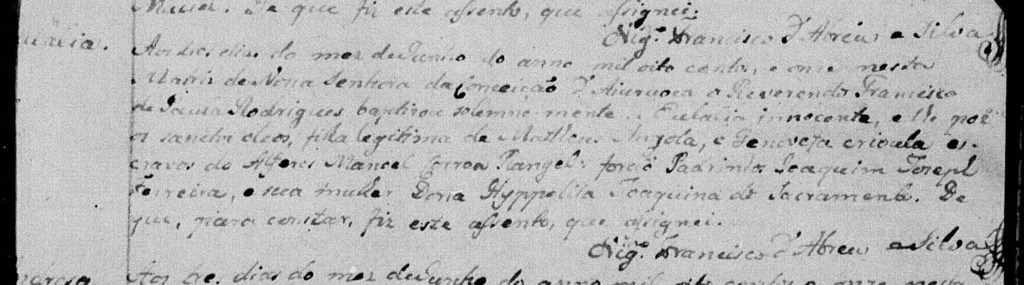 De que fiz este assento, que assignei.
Vigr.o Francisco d'Abreu e Silva
Eulalia. Aos dias do mez de Junho do anno mil oito centos, e onze nesta
Matriz de Nossa Senhora da Conceição d'Aiuruoca o Reverendo Francisco
de Souza Rodrigues baptizou solemne-mente a Eulalia innocente, e lhe poz
os sanctos oleos, filha legitima de Matheus Angola, e Genoveva crioula es-
cravos do Alferes Manoel Correa Rangel: forão Padrinhos Joaquim Joseph
Ferreira, e sua mulher Dona Hyppolita Joaquina do Sacramento. De
que, para constar, fiz este assento, que assignei.
Vigr.o Francisco d'Abreu e Silva
Aos dias do mez de Junho do anno mil oito centos e onze nesta